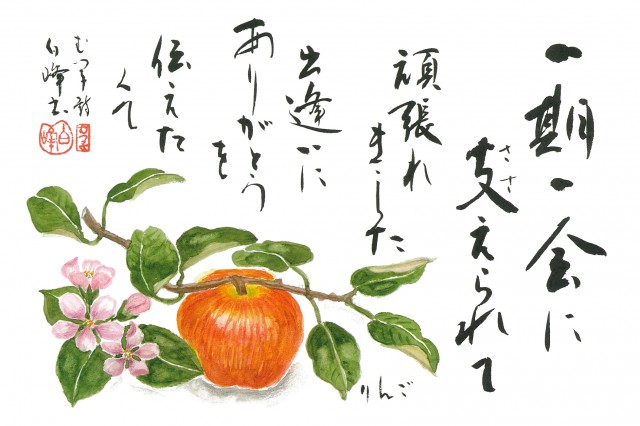 一期一会に
支えられて
ささ
頑張れ
ました
出逢いに
ありがとう
を
伝えた
くて
むつ子 詩
白峰 書
りんご